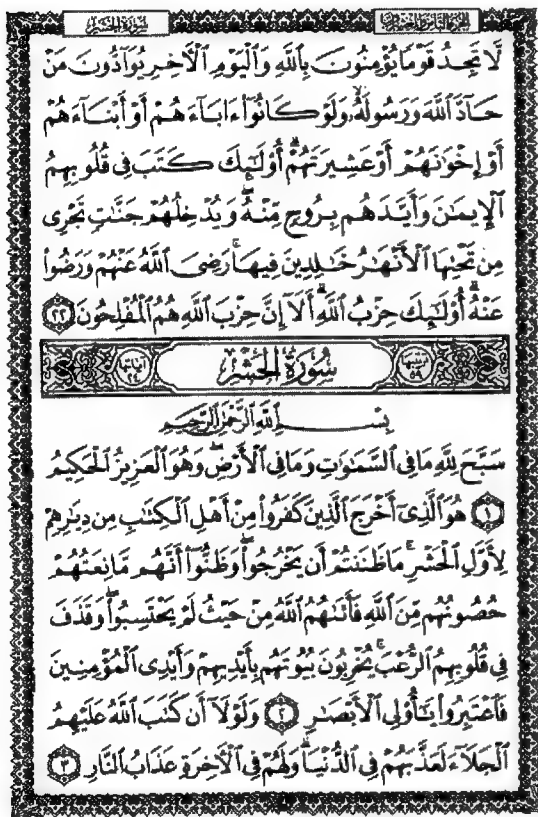 الجزء الثامن والعشرون
سورة الحشر
لَّا تَجِدُ قَوْمًا يُؤْمِنُونَ بِٱللَّهِ وَٱلْيَوْمِ ٱلْـَٔاخِرِ يُوَآدُّونَ مَنْ
حَآدَّ ٱللَّهَ وَرَسُولَهُۥ وَلَوْ كَانُوٓا۟ ءَابَآءَهُمْ أَوْ أَبْنَآءَهُمْ
أَوْ إِخْوَٰنَهُمْ أَوْ عَشِيرَتَهُمْ ۚ أُو۟لَـٰٓئِكَ كَتَبَ فِى قُلُوبِهِمُ
ٱلْإِيمَـٰنَ وَأَيَّدَهُم بِرُوحٍ مِّنْهُ ۖ وَيُدْخِلُهُمْ جَنَّـٰتٍ تَجْرِى
مِن تَحْتِهَا ٱلْأَنْهَـٰرُ خَـٰلِدِينَ فِيهَا ۚ رَضِىَ ٱللَّهُ عَنْهُمْ وَرَضُوا۟
عَنْهُ ۚ أُو۟لَـٰٓئِكَ حِزْبُ ٱللَّهِ ۚ أَلَآ إِنَّ حِزْبَ ٱللَّهِ هُمُ ٱلْمُفْلِحُونَ ٢٢
سُورَةُ الحَشْرِ
آياتها ٢٤
بِسْمِ ٱللَّهِ ٱلرَّحْمَـٰنِ ٱلرَّحِيمِ
سَبَّحَ لِلَّهِ مَا فِى ٱلسَّمَـٰوَٰتِ وَمَا فِى ٱلْأَرْضِ ۖ وَهُوَ ٱلْعَزِيزُ ٱلْحَكِيمُ
١ هُوَ ٱلَّذِىٓ أَخْرَجَ ٱلَّذِينَ كَفَرُوا۟ مِنْ أَهْلِ ٱلْكِتَـٰبِ مِن دِيَـٰرِهِمْ
لِأَوَّلِ ٱلْحَشْرِ ۚ مَا ظَنَنتُمْ أَن يَخْرُجُوا۟ ۖ وَظَنُّوٓا۟ أَنَّهُم مَّانِعَتُهُمْ
حُصُونُهُم مِّنَ ٱللَّهِ فَأَتَىٰهُمُ ٱللَّهُ مِنْ حَيْثُ لَمْ يَحْتَسِبُوا۟ ۖ وَقَذَفَ
فِى قُلُوبِهِمُ ٱلرُّعْبَ ۚ يُخْرِبُونَ بُيُوتَهُم بِأَيْدِيهِمْ وَأَيْدِى ٱلْمُؤْمِنِينَ
فَٱعْتَبِرُوا۟ يَـٰٓأُو۟لِى ٱلْأَبْصَـٰرِ ٢ وَلَوْلَآ أَن كَتَبَ ٱللَّهُ عَلَيْهِمُ
ٱلْجَلَآءَ لَعَذَّبَهُمْ فِى ٱلدُّنْيَا ۖ وَلَهُمْ فِى ٱلْـَٔاخِرَةِ عَذَابُ ٱلنَّارِ ٣